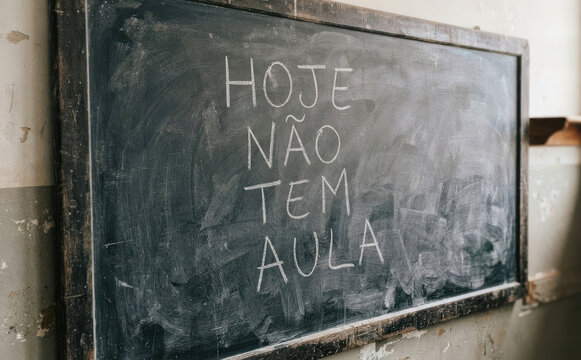 HOJE
NÃO
TEM
AULA